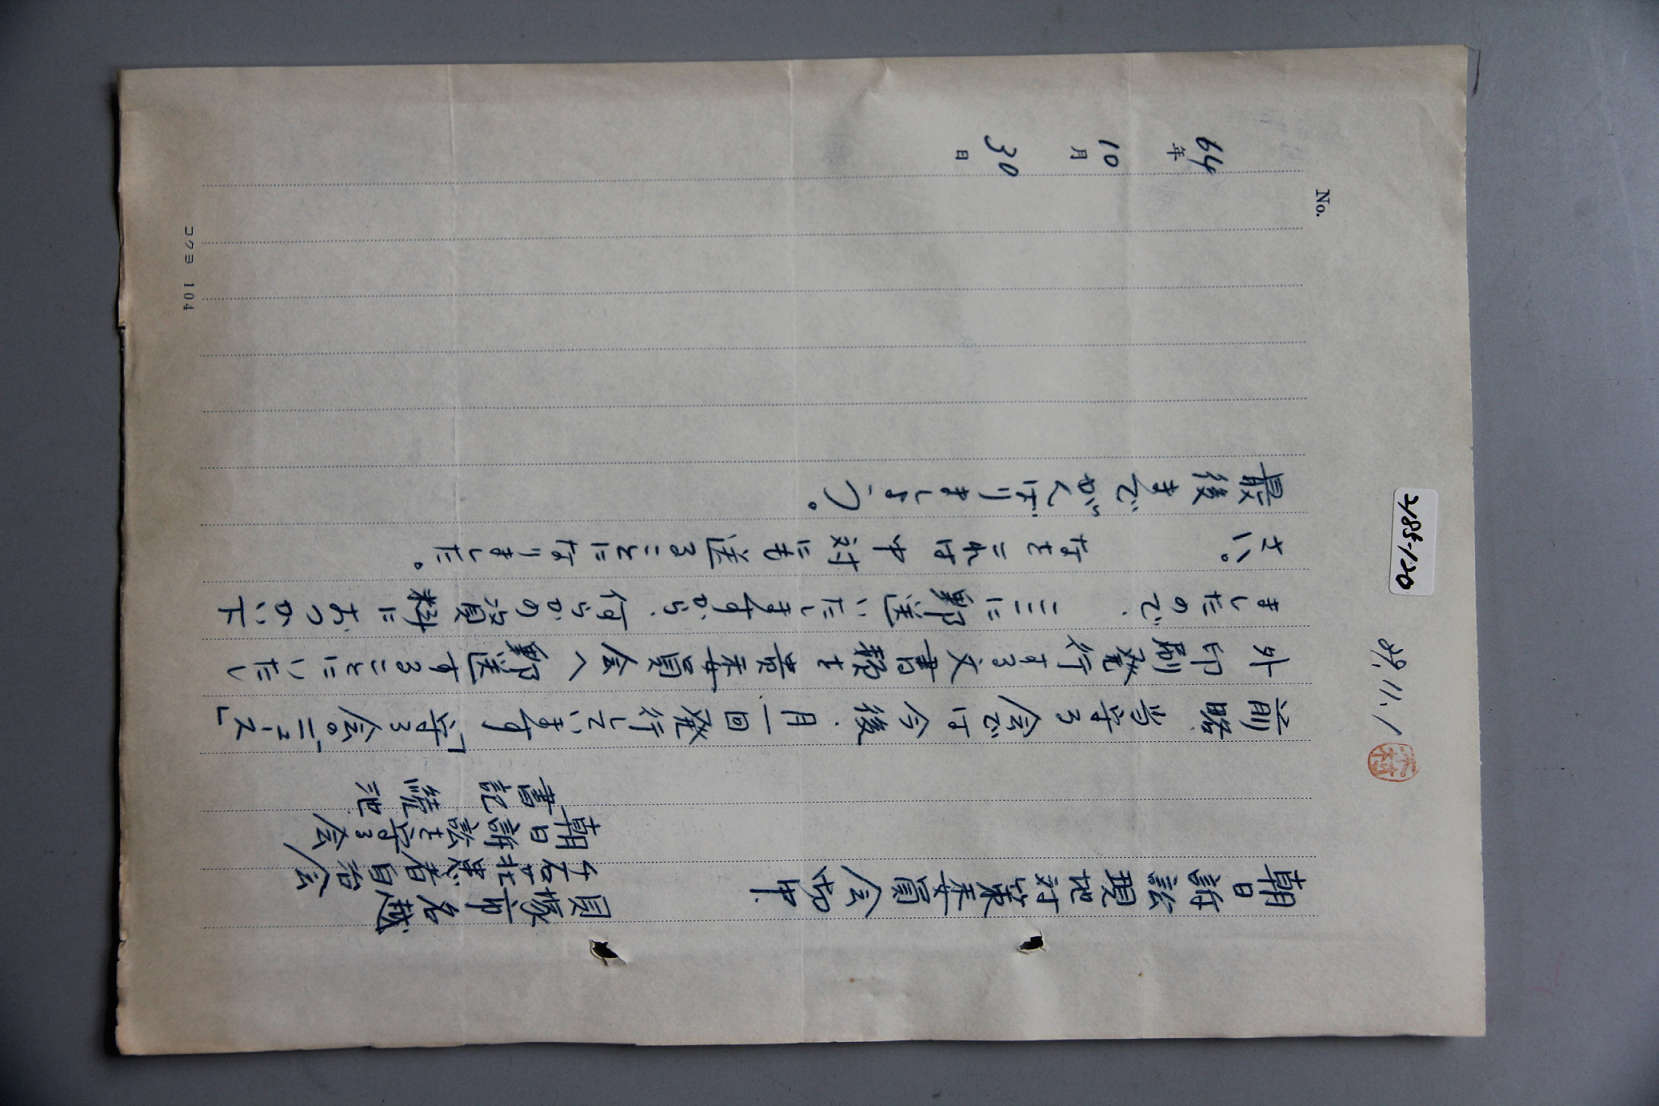 No.
64年10月30日
朝日訴訟現地対策委員会御中
貝塚市名越
千石荘患者自治会
朝日訴訟を守る会
書記 池
前略、当守る会では今後、月一回発行しています「守る会ニュース」
外印刷発行する文書類を貴委員会へ郵送することにいたし
ましたので、ここに郵送いたしますから、何らかの資料におつかい下
さい。 なをこれは中対にも送ることになりました。
最後までがんばりましょう。
コクヨ 104
39.11.1